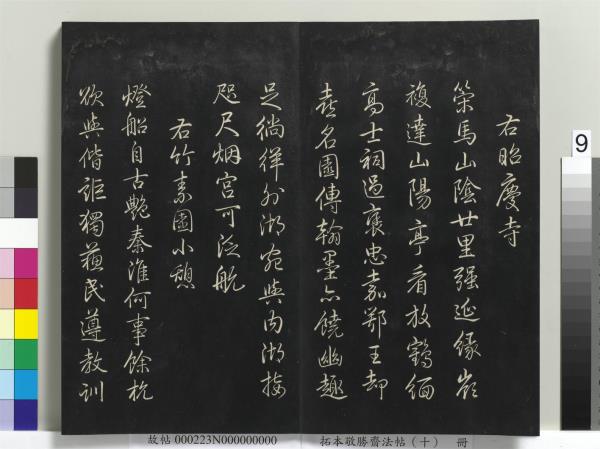 右昭慶寺
策馬山陰廿里强延緣嶺
複達山陽亭看放鶴緬
高士祠過褒忠嘉鄂王却
喜名園傳翰墨亦饒幽趣
足徜徉外湖宛與内湖接
咫尺烟宫可泛航
右竹素園小憩
燈船自古艶秦淮何事餘杭
欲與偕詎獨蘓民遵教訓
9
故帖 000223N000000000 拓本敬勝齋法帖(十) 冊